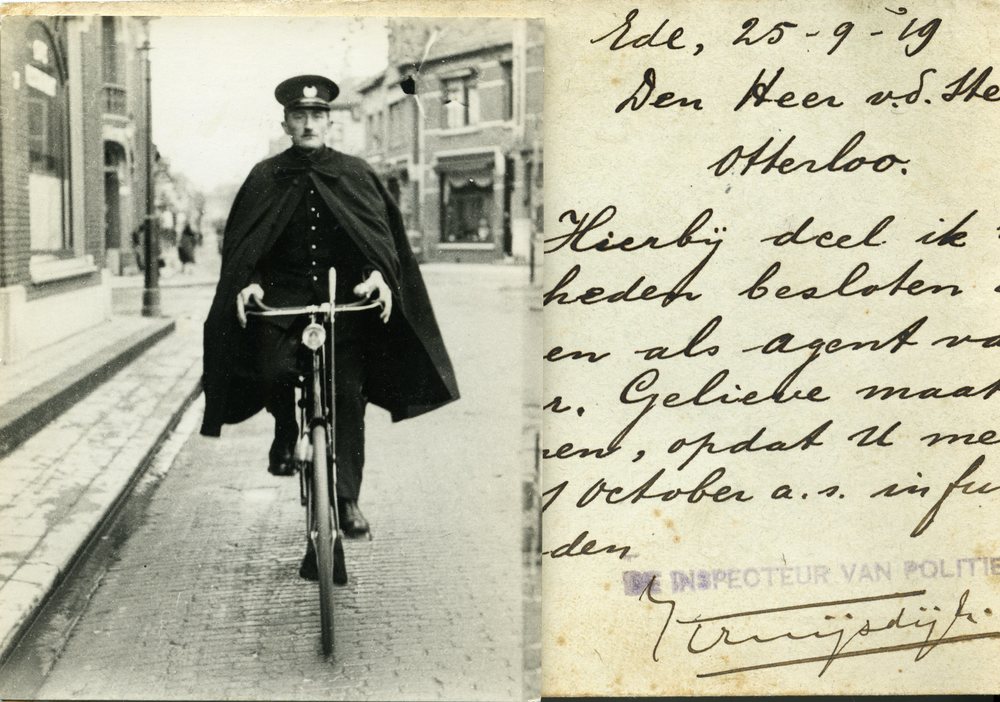 Ede, 25-9-19
Den Heer v.d. Ste
Otterloo.
Hierbij deel ik
heden besloten
en als agent va
r. Gelieve maat
en, opdat U me
October a.s. in fu
den
DE INSPECTEUR VAN POLITIE